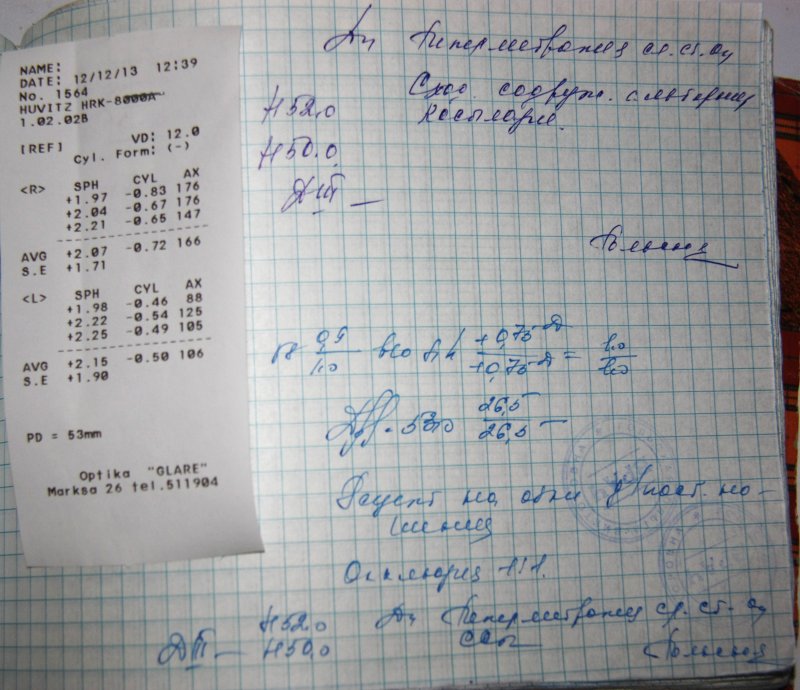 NAME:
DATE: 12/12/13 12:39
NO. 1564
HUVITZ HRK-8000A
1.02.02B
[REF] VD: 12.0
Cyl. Form: (-)
<R> SPH CYL AX
+1.97 -0.83 176
+2.04 -0.67 176
+2.21 -0.65 147
AVG +2.07 -0.72 166
S.E +1.71
<L> SPH CYL AX
+1.98 -0.46 88
+2.22 -0.54 125
+2.25 -0.49 105
AVG +2.15 -0.50 106
S.E +1.90
PD = 53mm
Optika "GLARE"
Marksa 26 tel.511904
Гиперметропия ср. ст. ou
Сход. содруж. с альтерни
H52.0 косоглазие.
H50.0
ДIII —
+0,75 Д
+0,75 Д = 1.0
1.0
53.0 26,5
26,5
Рецепт на очки пост. но-
шения
Окклюзия 1:1.
H52.0 Гиперметропия ср. ст. ou
ДIII — H50.0